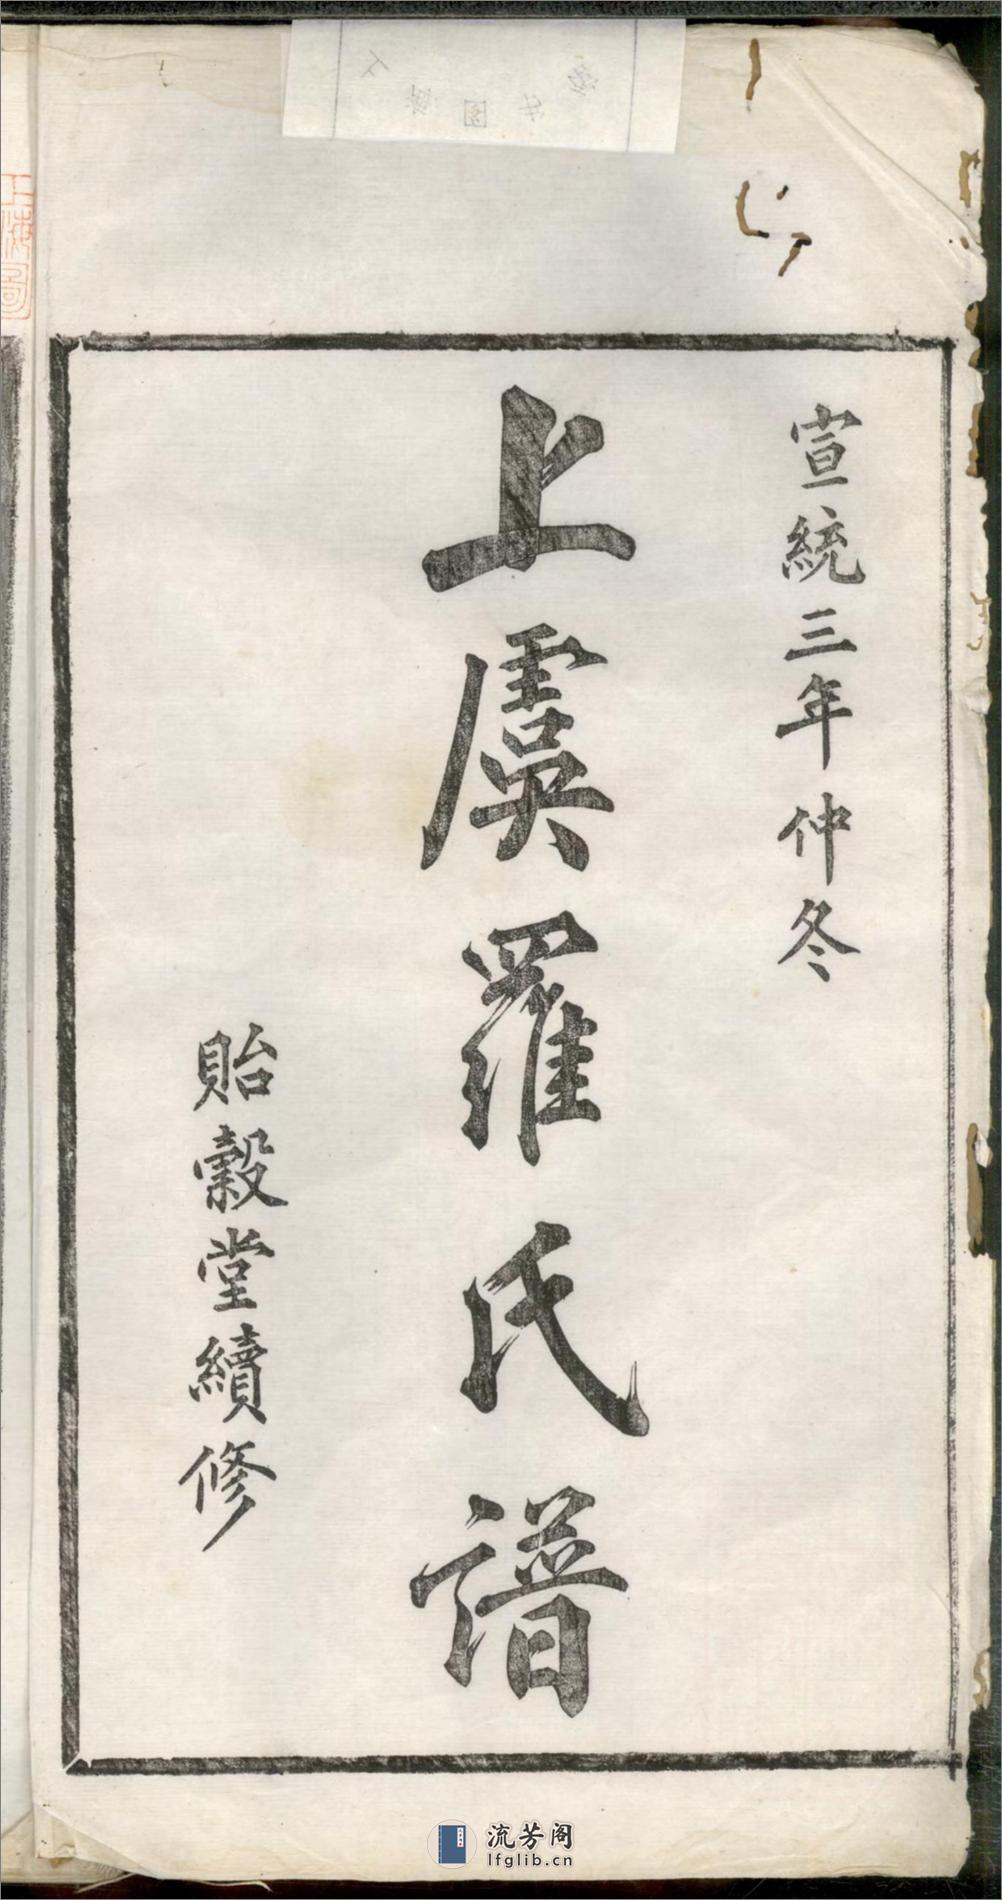 宣統三年仲冬
上虞羅氏譜
貽穀堂續修
上海圖
流芳阁
lfglib.cn